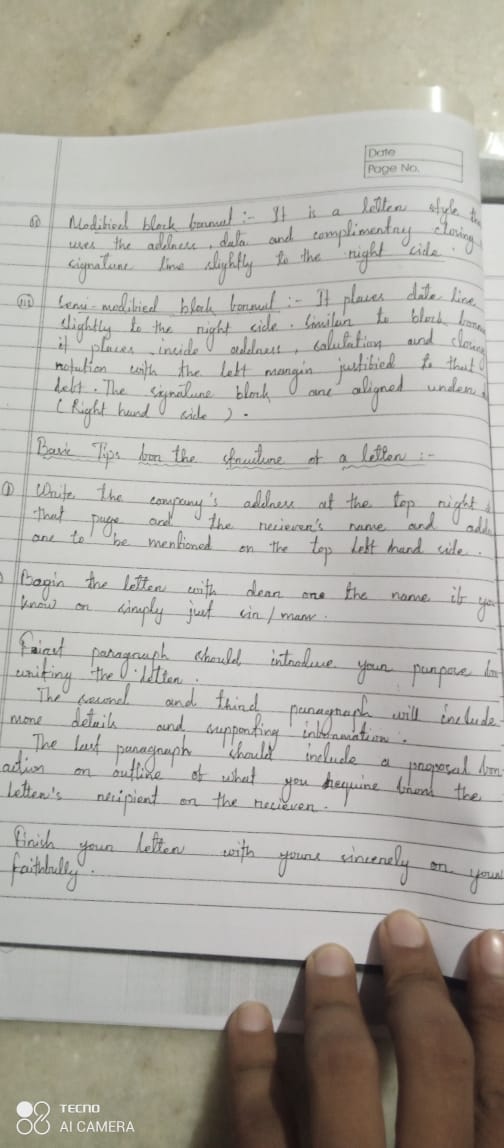 Date
Page No.
(ii) Modified block format :- It is a letter style
uses the address, data and complimentary closing
signature line slightly to the right side.
(iii) Semi-modified block format :- It places date line
slightly to the right side. Similar to block
it places inside address, salutation and closing
notation with the left margin justified to that
left. The signature block are aligned under
(Right hand side).
Basic Tips for the structure of a letter :-
① Write the company's address at the top right
that page and the reciever's name and
are to be mentioned on the top left hand side.
Begin the letter with dear one the name if you
know or simply just sir/mam.
First paragraph should introduce your purpose for
writing the letter.
The second and third paragraph will include
more details and supporting information.
The last paragraph should include a proposal for
action or outline of what you require from the
letter's recipient or the reciever.
Finish your letter with yours sincerely or your
faithfully.
TECNO
AI CAMERA